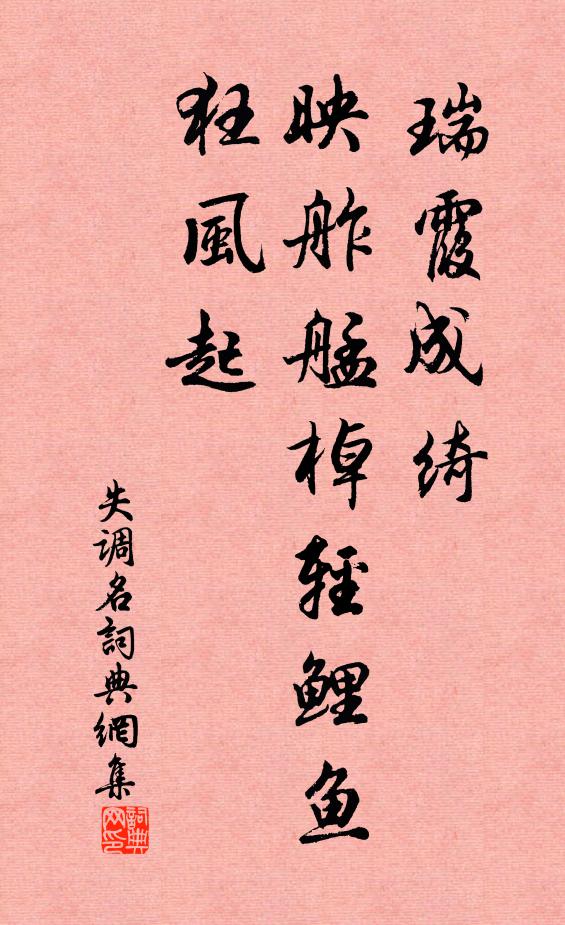 瑞霞成绮
映舴艋棹輕鲤鱼
狂風起
失调名詞典網集
詞典网印